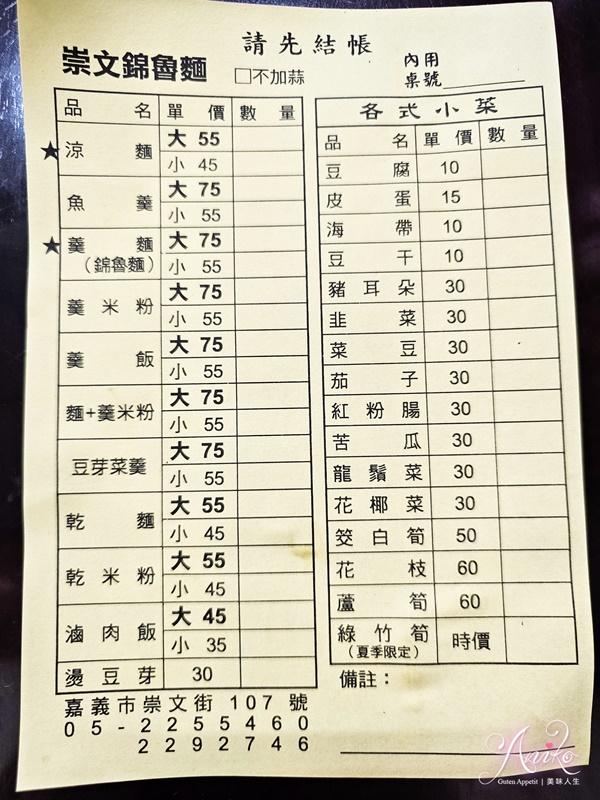 請先結帳
崇文錦魯麵
□不加蒜
內用
桌號
品名 單價 數量
★涼麵 大 55
小 45
魚羹 大 75
小 55
★羹麵 大 75
(錦魯麵) 小 55
羹米粉 大 75
小 55
羹飯 大 75
小 55
麵+羹米粉 大 75
小 55
豆芽菜羹 大 75
小 55
乾麵 大 55
小 45
乾米粉 大 55
小 45
滷肉飯 大 45
小 35
燙豆芽 30
嘉義市崇文街107號
05-2255460
2292746
各式小菜
品名 單價 數量
豆腐 10
皮蛋 15
海帶 10
豆干 10
豬耳朵 30
韭菜 30
菜豆 30
茄子 30
紅粉腸 30
苦瓜 30
龍鬚菜 30
花椰菜 30
筊白筍 50
花枝 60
蘆筍 60
綠竹筍 時價
(夏季限定)
備註：
Aniko
Guten Appetit | 美味人生